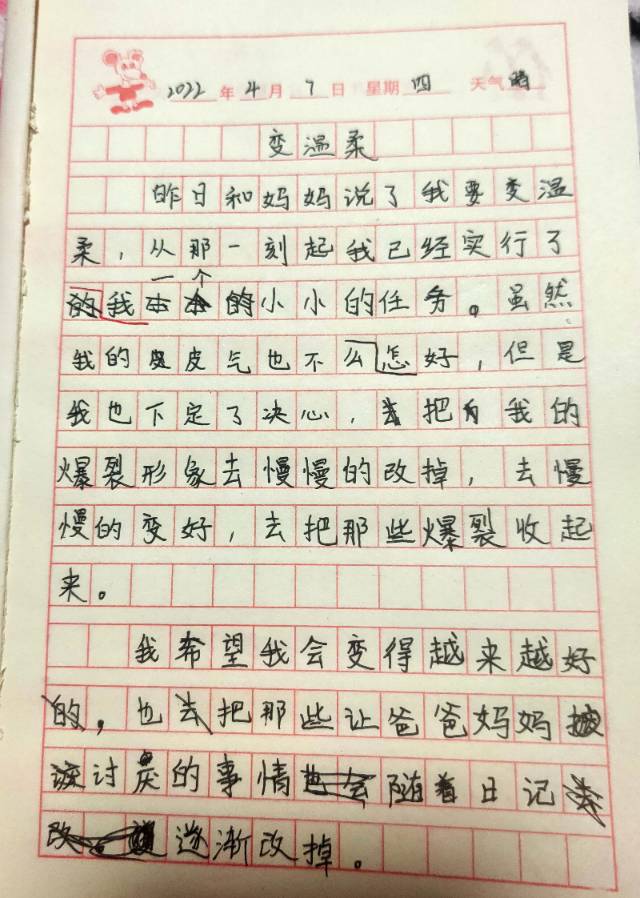 2022年4月7日 星期四 天气晴
变温柔
昨日和妈妈说了我要变温
柔,从那一刻起我已经实行了
一个
我的小小的任务。虽然
我的皮气也不么怎好,但是
我也下定了决心,去把我的
爆裂形象去慢慢的改掉,去慢
慢的变好,去把那些爆裂收起
来。
我希望我会变得越来越好
,也把那些让爸爸妈妈
讨厌的事情随着日记
逐渐改掉。